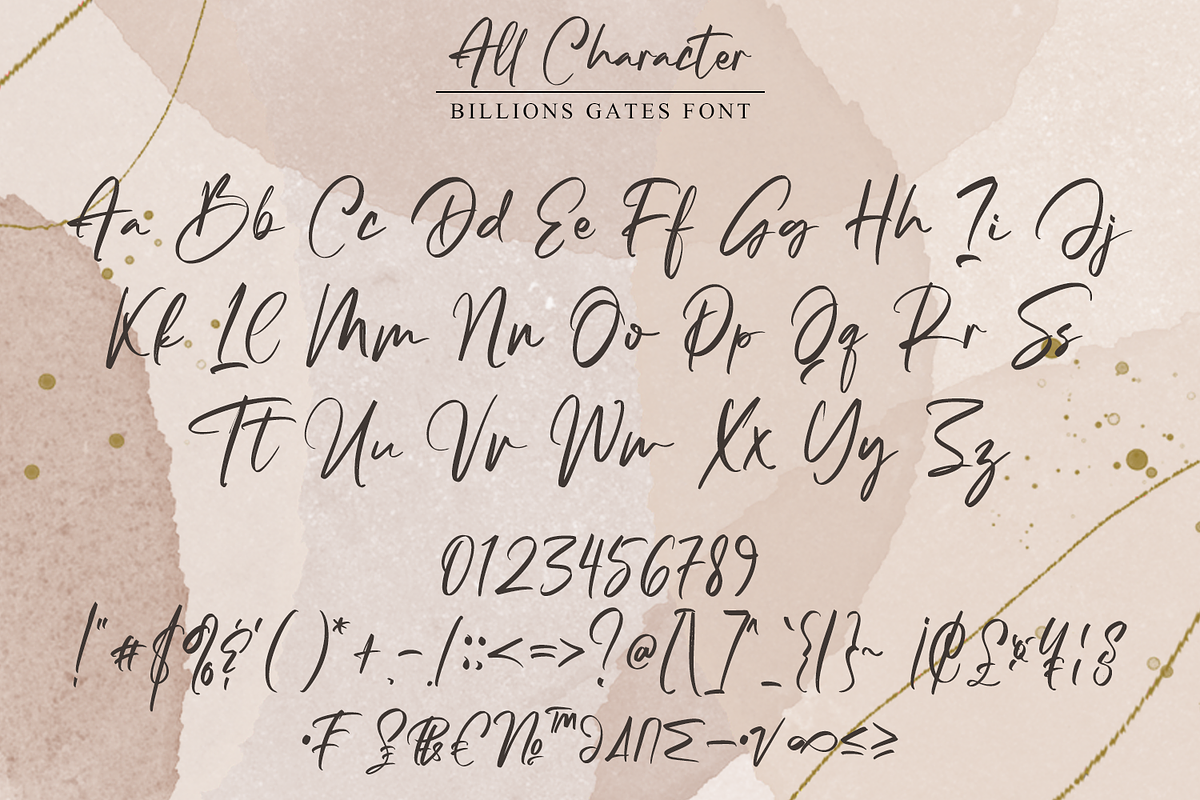 All Character
BILLIONS GATES FONT
Aa Bb Cc Dd Ee Ff Gg Hh Ii Jj
Kk Ll Mm Nn Oo Pp Qq Rr Ss
Tt Uu Vv Ww Xx Yy Zz
0123456789
!"#$%&'()*+,-./:;<=>?@[\]^_`{|}~ ¡¢£¤¥¦§
·₣ ₤₧€№™∂∆∏∑−∙√∞≤≥